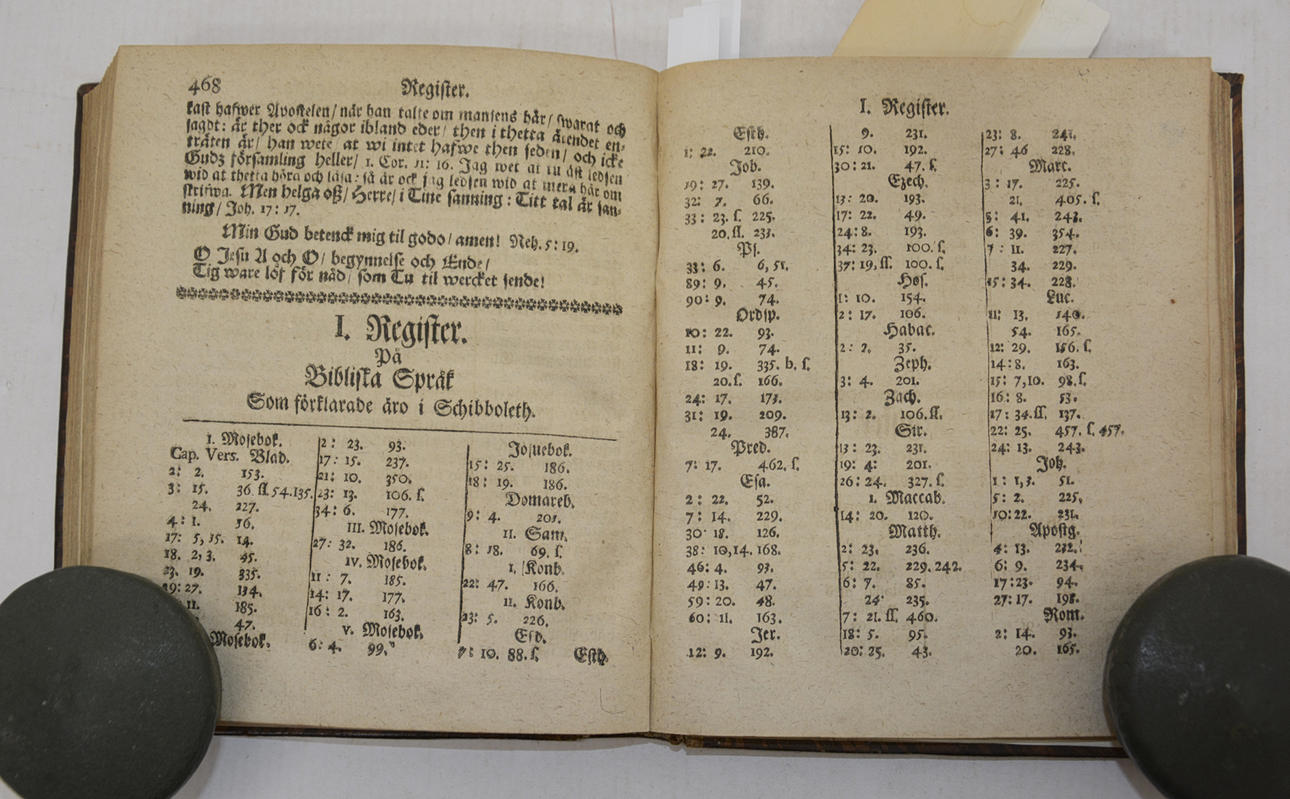 468 Register.
kast hafwer Apostelen/ när han talte om mansens hår/ swarat och
sagdt: är ther ock någor ibland eder/ then i thetta ärendet en-
träten är/ han wete/ at wi intet hafwe then seden/ och icke
Gudz församling heller/ 1. Cor. 11: 16. Jag wet at tu äst ledsen
wid at thetta höra och läsa: så är ock jag ledsen wid at mera här om
skrifwa. Men helga oß/ Herre/ i Tine sanning: Titt tal är san-
ning/ Joh. 17: 17.
Min Gud betenck mig til godo/ amen! Neh. 5: 19.
O Jesu A och O/ begynnelse och Ende/
Tig ware lof för nåd/ som Tu til wercket sende!
I. Register.
På
Bibliska Språk
Som förklarade äro i Schibboleth.
1. Mosebok.
Cap. Vers. Blad.
2: 2. 153.
3: 15. 36. ff. 54. 135.
24. 227.
4: 1. 36.
17: 5, 15. 14.
18. 2, 3. 45.
23. 19. 335.
29: 27. 134.
11. 185.
47.
Mosebok.
2: 23. 93.
17: 15. 237.
21: 10. 350.
23: 13. 106. f.
34: 6. 177.
III. Mosebok.
27: 32. 186.
IV. Mosebok.
11: 7. 185.
14: 17. 177.
16: 2. 163.
V. Mosebok.
6: 4. 99.
Josuebok.
15: 25. 186.
18: 19. 186.
Domareb.
9: 4. 201.
II. Sam.
8: 18. 69. f.
I. Konb.
22: 47. 166.
II. Konb.
23: 5. 226.
Esd.
7: 10. 88. f.
Esth.
I. Register.
Esth.
1: 22. 210.
Job.
19: 27. 139.
32: 7. 66.
33: 23. f. 225.
20. ff. 231.
Ps.
33: 6. 6, 51.
89: 9. 45.
90: 9. 74.
Ordsp.
10: 22. 93.
11: 9. 74.
18: 19. 335. b. f.
20. f. 166.
24: 17. 173.
31: 19. 209.
24. 387.
Pred.
7: 17. 462. f.
Esa.
2: 22. 52.
7: 14. 229.
30: 18. 126.
38: 10, 14. 168.
46: 4. 93.
49: 13. 47.
59: 20. 48.
60: 11. 163.
Jer.
12: 9. 192.
9. 231.
15: 10. 192.
30: 21. 47. f.
Ezech.
13: 20. 193.
17: 22. 49.
24: 8. 193.
34: 23. 100. f.
37: 19, ff. 100. f.
Hos.
1: 10. 154.
2: 17. 106.
Habac.
2: 2. 35.
Zeph.
3: 4. 201.
Zach.
13: 2. 106. ff.
Sir.
13: 23. 231.
19: 4: 201.
26: 24. 327. f.
1. Maccab.
14: 20. 120.
Matth.
2: 23. 236.
5: 22. 229. 242.
6: 7. 85.
24. 235.
7: 21. ff. 460.
18: 5. 95.
20: 25. 43.
23: 8. 241.
27: 46 228.
Marc.
3: 17. 225.
21. 405. f.
5: 41. 243.
6: 39. 354.
7: 11. 227.
34. 229.
15: 34. 228.
Luc.
11: 13. 140.
54. 165.
12: 29. 156. f.
14: 8. 163.
15: 7, 10. 98. f.
16: 8. 53.
17: 34. ff. 137.
22: 25. 457. f. 457.
24: 13. 243.
Joh.
1: 1, 3. 51.
5: 2. 225.
10: 22. 231.
Apostg.
4: 13. 232.
6: 9. 234.
17: 23. 94.
27: 17. 198.
Rom.
2: 14. 93.
20. 165.